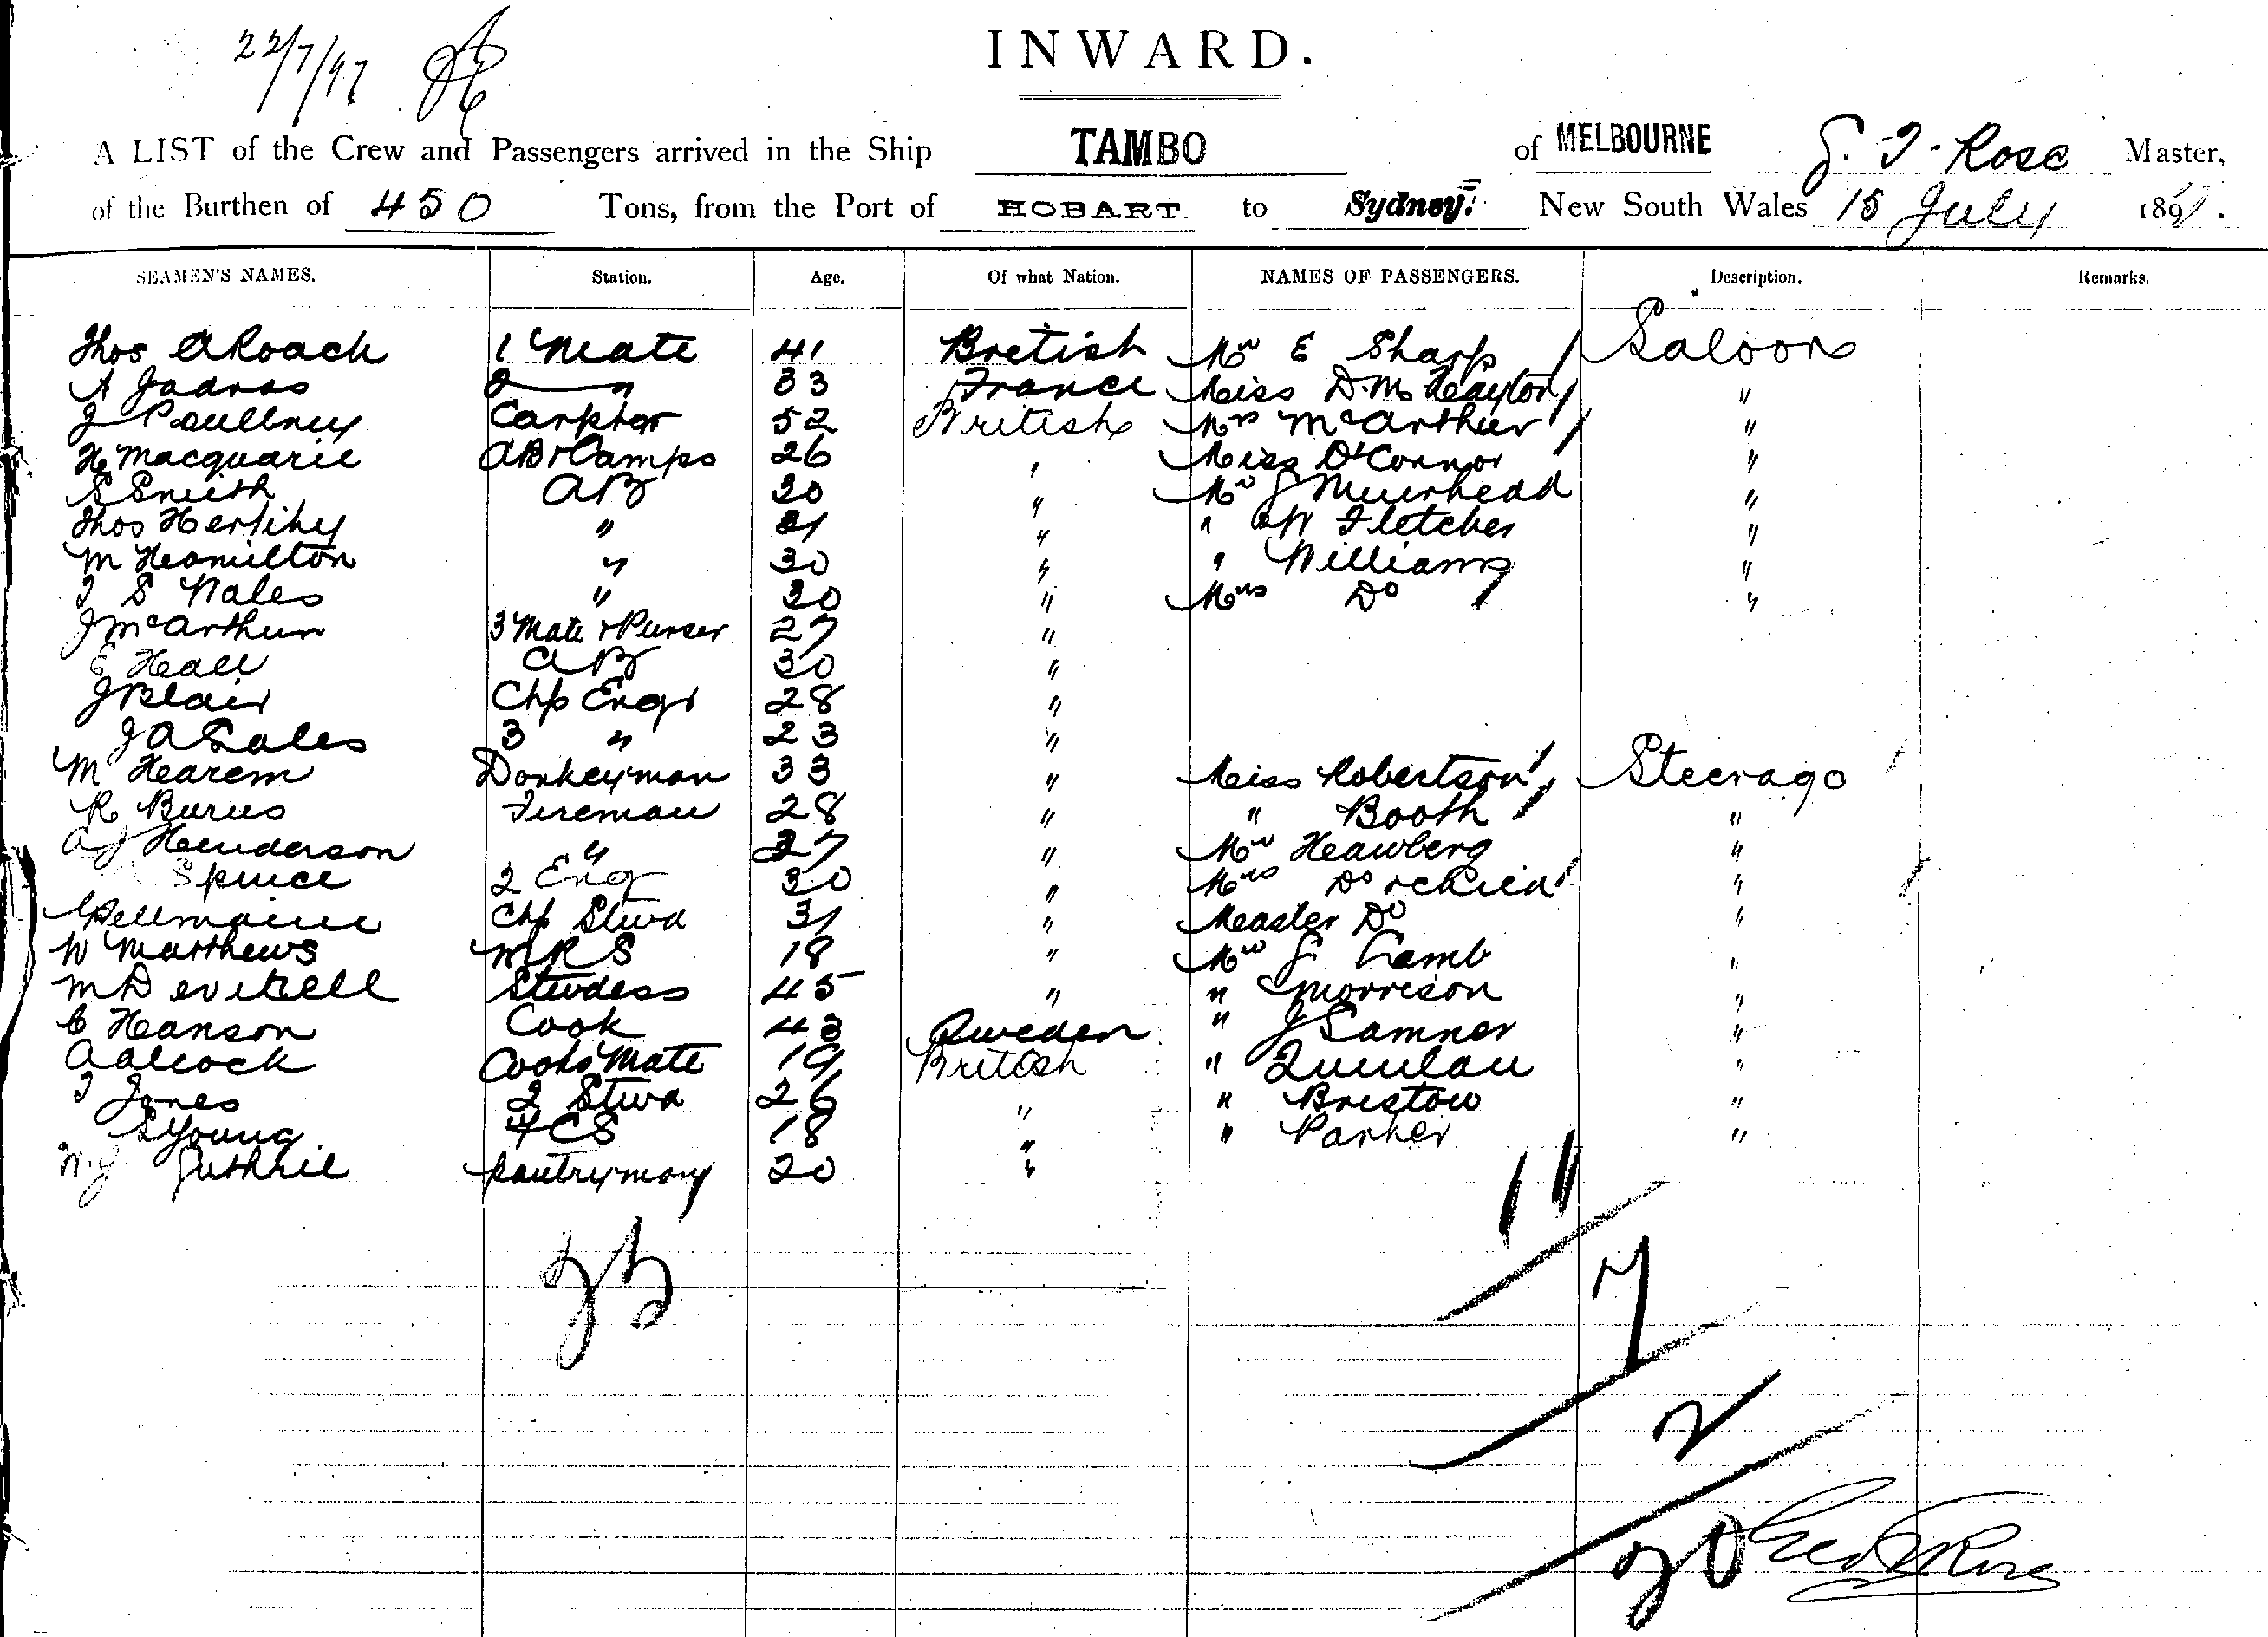 22/7/97
INWARD.
A LIST of the Crew and Passengers arrived in the Ship TAMBO of MELBOURNE G. T. Rose Master,
of the Burthen of 450 Tons, from the Port of HOBART. to Sydney. New South Wales 15 July 189
SEAMEN'S NAMES. Station. Age. Of what Nation. NAMES OF PASSENGERS. Description. Remarks.
Thos A Roach 1 Mate 41 British Mr E Sharp Saloon
A 2 " 33 France Miss D. M. "
J Carpter 52 British Mrs McArthur "
H Macquarie AB & Lamps 26 " Miss O'Connor "
S Smith AB 30 " Mr J Muirhead "
Thos Herlihy " 21 " " W Fletcher "
M Hamilton " 30 " " Williams "
T S " 30 " Mrs Do "
J McArthur 3 Mate & Purser 27 "
E Hall AB 30 "
J Blair Chf Engr 28 "
J A 3 " 23 "
M Donkeyman 33 " Miss Robertson Steerage
R Burns Fireman 28 " " Booth "
A J Henderson " 27 " Mr "
Spence 2 Eng 30 " Mrs Do & child "
Chf Stwd 31 " Master Do "
W Matthews M R S 18 " Mr J Lamb "
M Stwdess 45 " " Morrison "
C Hanson Cook 43 Sweden " J "
A Alcock Cooks Mate 19 British " Quinlan "
T Jones 2 Stwd 26 " " Bristow "
S Young F C S 18 " " Parker "
W. J. Guthrie Pantryman 20 "
11
7
2
20
Geo T Rose